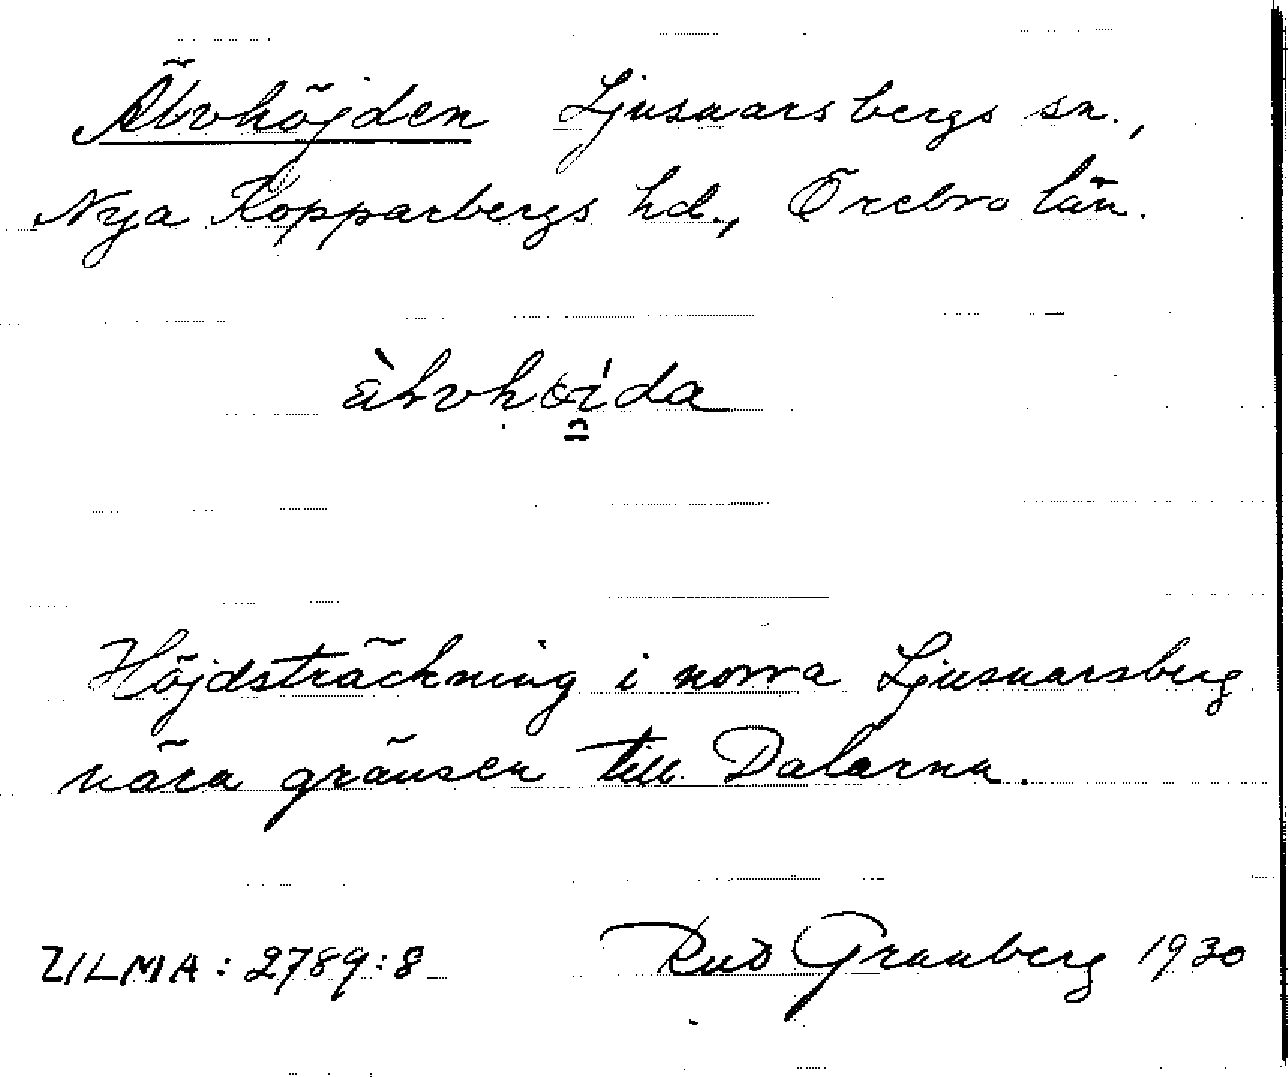 Älvhöjden Ljusnarsbergs sn.,
Nya Kopparbergs hd., Örebro län.
Höjdsträckning i norra Ljusnarsberg
nära gränsen till Dalarna.
ULMA: 2789:8 Rud Granberg 1930